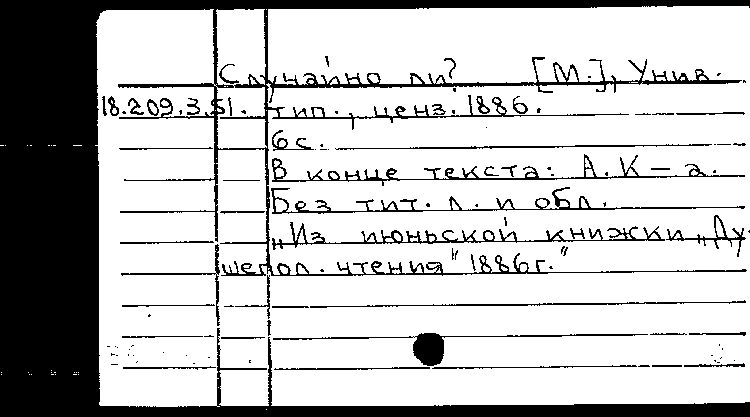 Случайно ли? [М.], Унив.
18.209.3.51. тип., ценз. 1886.
6 с.
В конце текста: А. К – а.
Без тит. л. и обл.
„Из июньской книжки „Ду-
шепол. чтения" 1886 г."